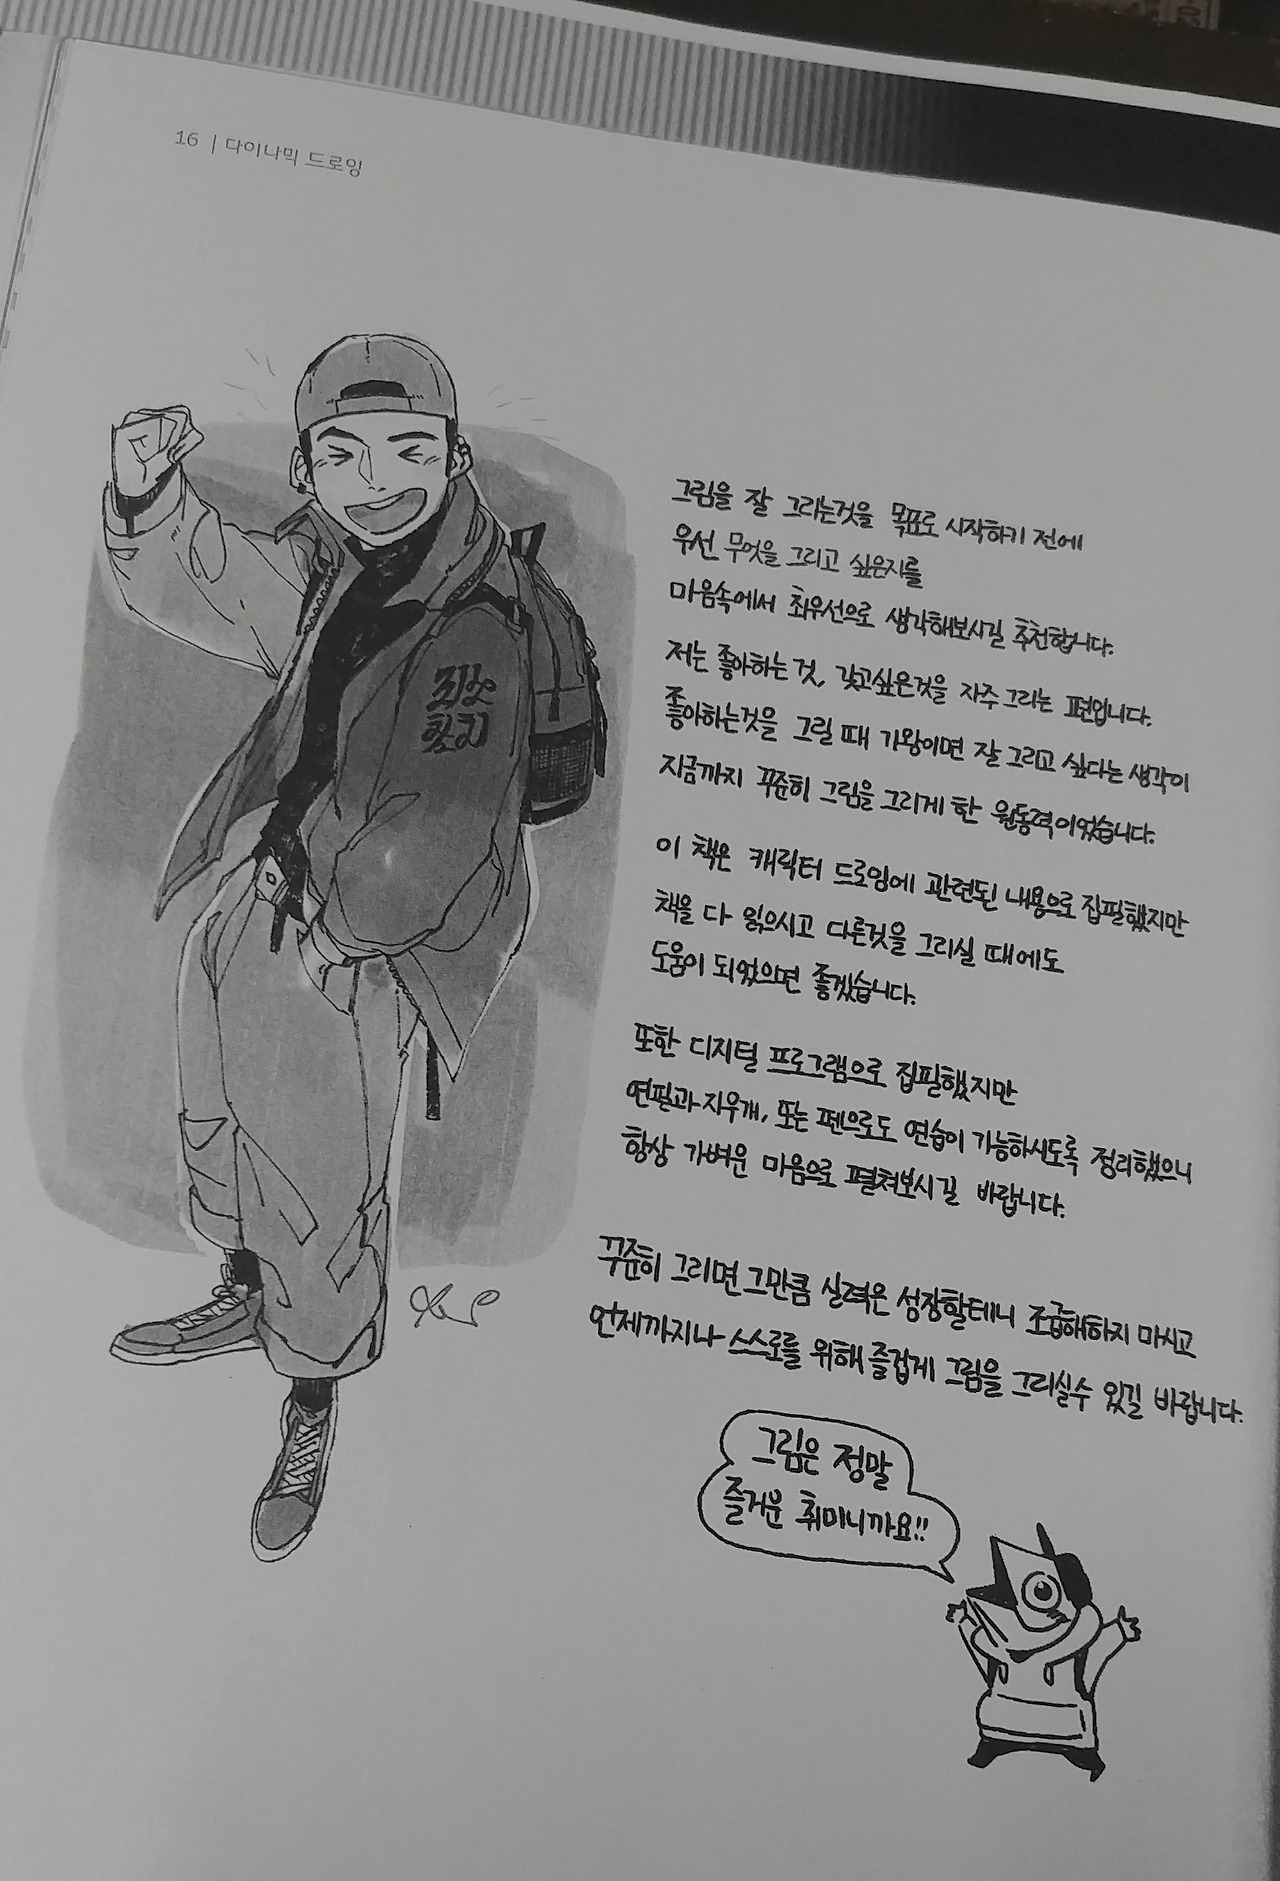 16 | 다이나믹 드로잉
그림을 잘 그리는것을 목표로 시작하기 전에
우선 무엇을 그리고 싶은지를
마음속에서 최우선으로 생각해보시길 추천합니다.
저는 좋아하는 것, 갖고싶은것을 자주 그리는 편입니다.
좋아하는것을 그릴 때 기왕이면 잘 그리고 싶다는 생각이
지금까지 꾸준히 그림을 그리게 한 원동력이었습니다.
이 책은 캐릭터 드로잉에 관련된 내용으로 집필했지만
책을 다 읽으시고 다른것을 그리실 때에도
도움이 되었으면 좋겠습니다.
또한 디지털 프로그램으로 집필했지만
연필과 지우개, 또는 펜으로도 연습이 가능하시도록 정리했으니
항상 가벼운 마음으로 펼쳐보시길 바랍니다.
꾸준히 그리면 그만큼 실력은 성장할테니 조급해하지 마시고
언제까지나 스스로를 위해 즐겁게 그림을 그리실수 있길 바랍니다.
그림은 정말
즐거운 취미니까요!!